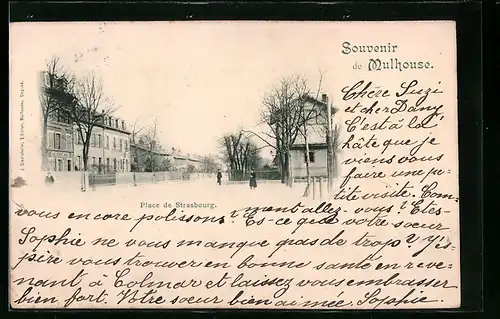 Souvenir
de Mulhouse.
Place de Strasbourg.
Chère Suzi
et cher Dany,
C'est à la
hâte que je
viens vous
faire une pe-
tite visite. Com-
ment allez-vous? Etes-
vous encore polissons? Est-ce que votre sœur
Sophie ne vous manque pas de trop? J'es-
père vous trouver en bonne santé en reve-
nant à Colmar et laissez vous embrasser
bien fort. Votre sœur bien aimée. Sophie.